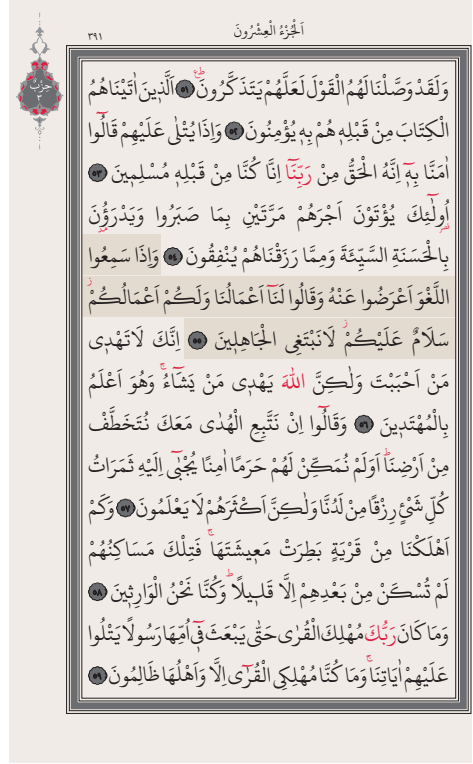 اَلْجُزْءُ الْعِشْرُونَ
٣٩١
حِزْبُ
٢
وَلَقَدْ وَصَّلْنَا لَهُمُ الْقَوْلَ لَعَلَّهُمْ يَتَذَكَّرُونَۜ ﴿٥١﴾ اَلَّذٖينَ اٰتَيْنَاهُمُ
الْكِتَابَ مِنْ قَبْلِهٖ هُمْ بِهٖ يُؤْمِنُونَ ﴿٥٢﴾ وَاِذَا يُتْلٰى عَلَيْهِمْ قَالُٓوا
اٰمَنَّا بِهٖٓ اِنَّهُ الْحَقُّ مِنْ رَبِّنَٓا اِنَّا كُنَّا مِنْ قَبْلِهٖ مُسْلِمٖينَ ﴿٥٣﴾
اُو۬لٰٓئِكَ يُؤْتَوْنَ اَجْرَهُمْ مَرَّتَيْنِ بِمَا صَبَرُوا وَيَدْرَؤُ۫نَ
بِالْحَسَنَةِ السَّيِّئَةَ وَمِمَّا رَزَقْنَاهُمْ يُنْفِقُونَ ﴿٥٤﴾ وَاِذَا سَمِعُوا
اللَّغْوَ اَعْرَضُوا عَنْهُ وَقَالُوا لَنَٓا اَعْمَالُنَا وَلَكُمْ اَعْمَالُكُمْؗ
سَلَامٌ عَلَيْكُمْؗ لَا نَبْتَغِى الْجَاهِلٖينَ ﴿٥٥﴾ اِنَّكَ لَا تَهْدٖى
مَنْ اَحْبَبْتَ وَلٰكِنَّ اللّٰهَ يَهْدٖى مَنْ يَشَٓاءُۚ وَهُوَ اَعْلَمُ
بِالْمُهْتَدٖينَ ﴿٥٦﴾ وَقَالُٓوا اِنْ نَتَّبِعِ الْهُدٰى مَعَكَ نُتَخَطَّفْ
مِنْ اَرْضِنَاؕ اَوَلَمْ نُمَكِّنْ لَهُمْ حَرَمًا اٰمِنًا يُجْبٰٓى اِلَيْهِ ثَمَرَاتُ
كُلِّ شَىْءٍ رِزْقًا مِنْ لَدُنَّا وَلٰكِنَّ اَكْثَرَهُمْ لَا يَعْلَمُونَ ﴿٥٧﴾ وَكَمْ
اَهْلَكْنَا مِنْ قَرْيَةٍ بَطِرَتْ مَعٖيشَتَهَاۚ فَتِلْكَ مَسَاكِنُهُمْ
لَمْ تُسْكَنْ مِنْ بَعْدِهِمْ اِلَّا قَلٖيلًاؕ وَكُنَّا نَحْنُ الْوَارِثٖينَ ﴿٥٨﴾
وَمَا كَانَ رَبُّكَ مُهْلِكَ الْقُرٰى حَتّٰى يَبْعَثَ فٖٓى اُمِّهَا رَسُولًا يَتْلُوا
عَلَيْهِمْ اٰيَاتِنَاۚ وَمَا كُنَّا مُهْلِكِى الْقُرٰٓى اِلَّا وَاَهْلُهَا ظَالِمُونَ ﴿٥٩﴾